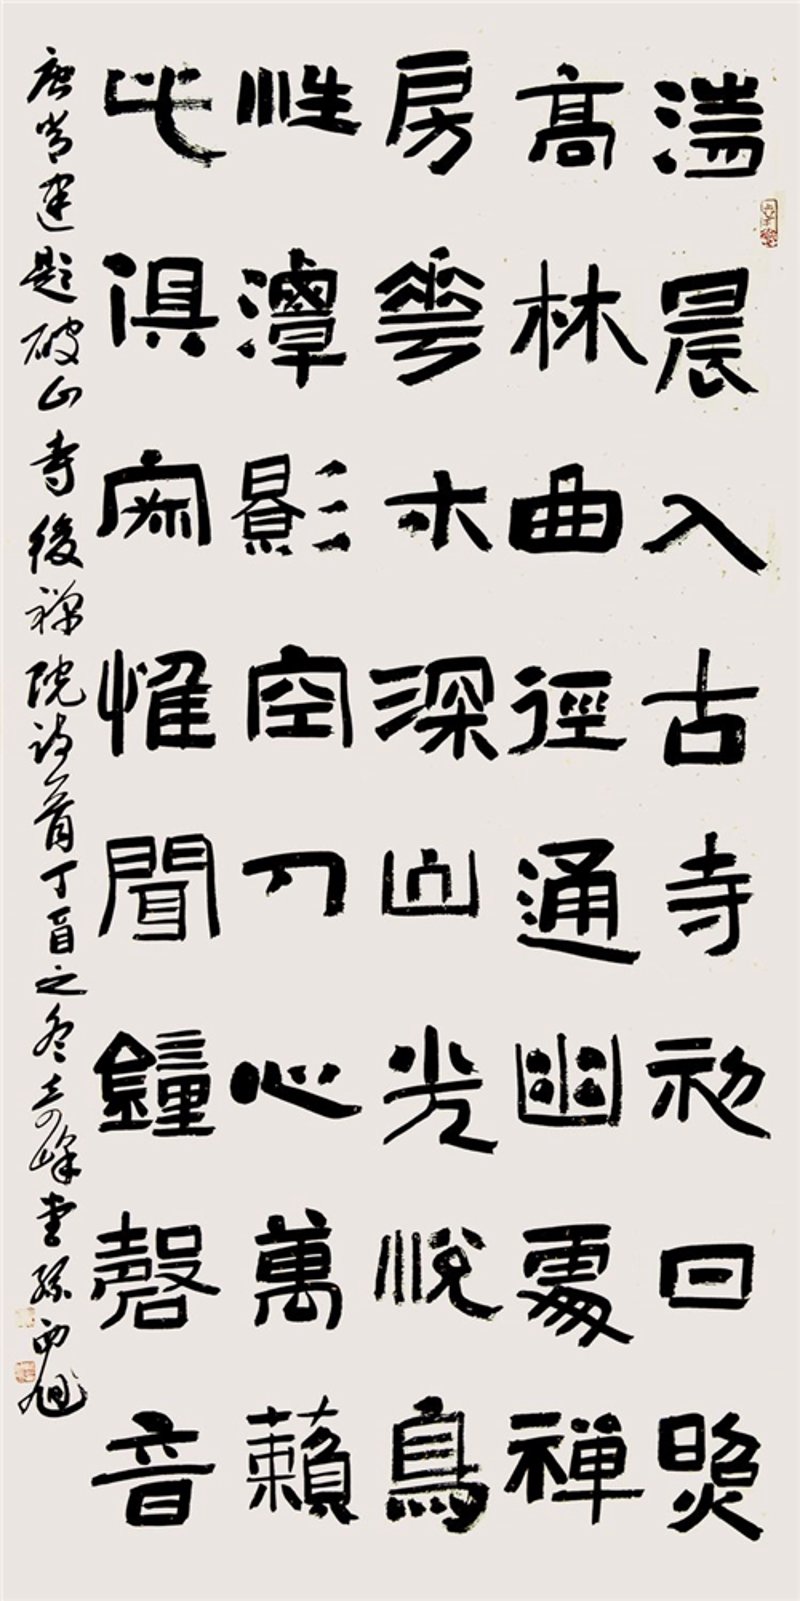 清晨入古寺初日照
高林曲徑通幽處禪
房華木深山光悅鳥
性潭影空人心萬籟
比俱寂惟聞鐘磬音
唐常建題破山寺後禪院詩一首丁酉之冬奇峰堂孫西旭